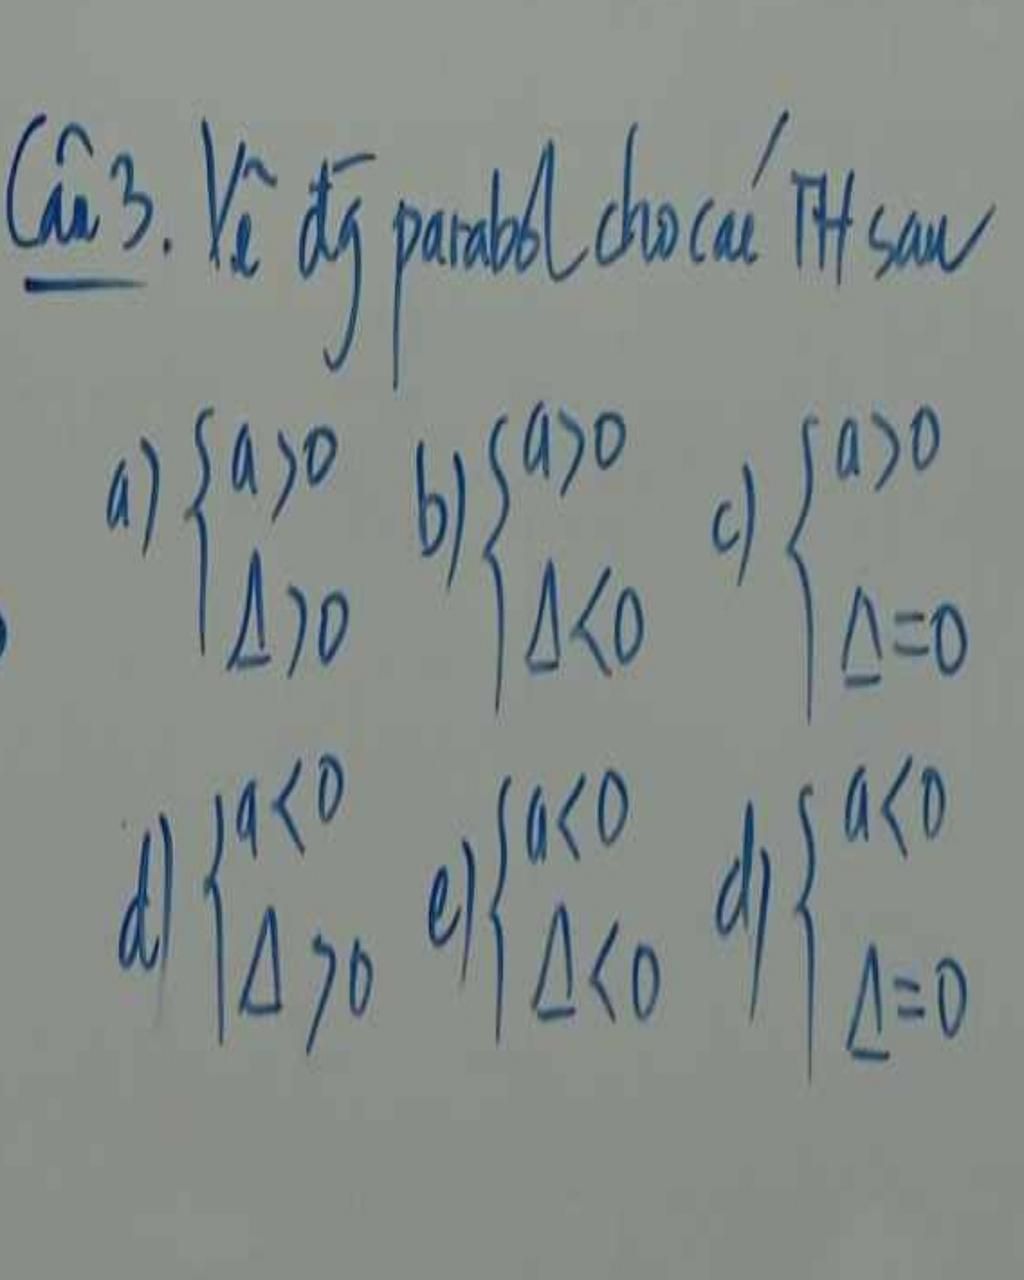 Câu 3. Vẽ đg parabol cho các TH sau
a) { a>0 b) { a>0 c) { a>0
Δ>0 Δ<0 Δ=0
d) { a<0 e) { a<0 d) { a<0
Δ>0 Δ<0 Δ=0